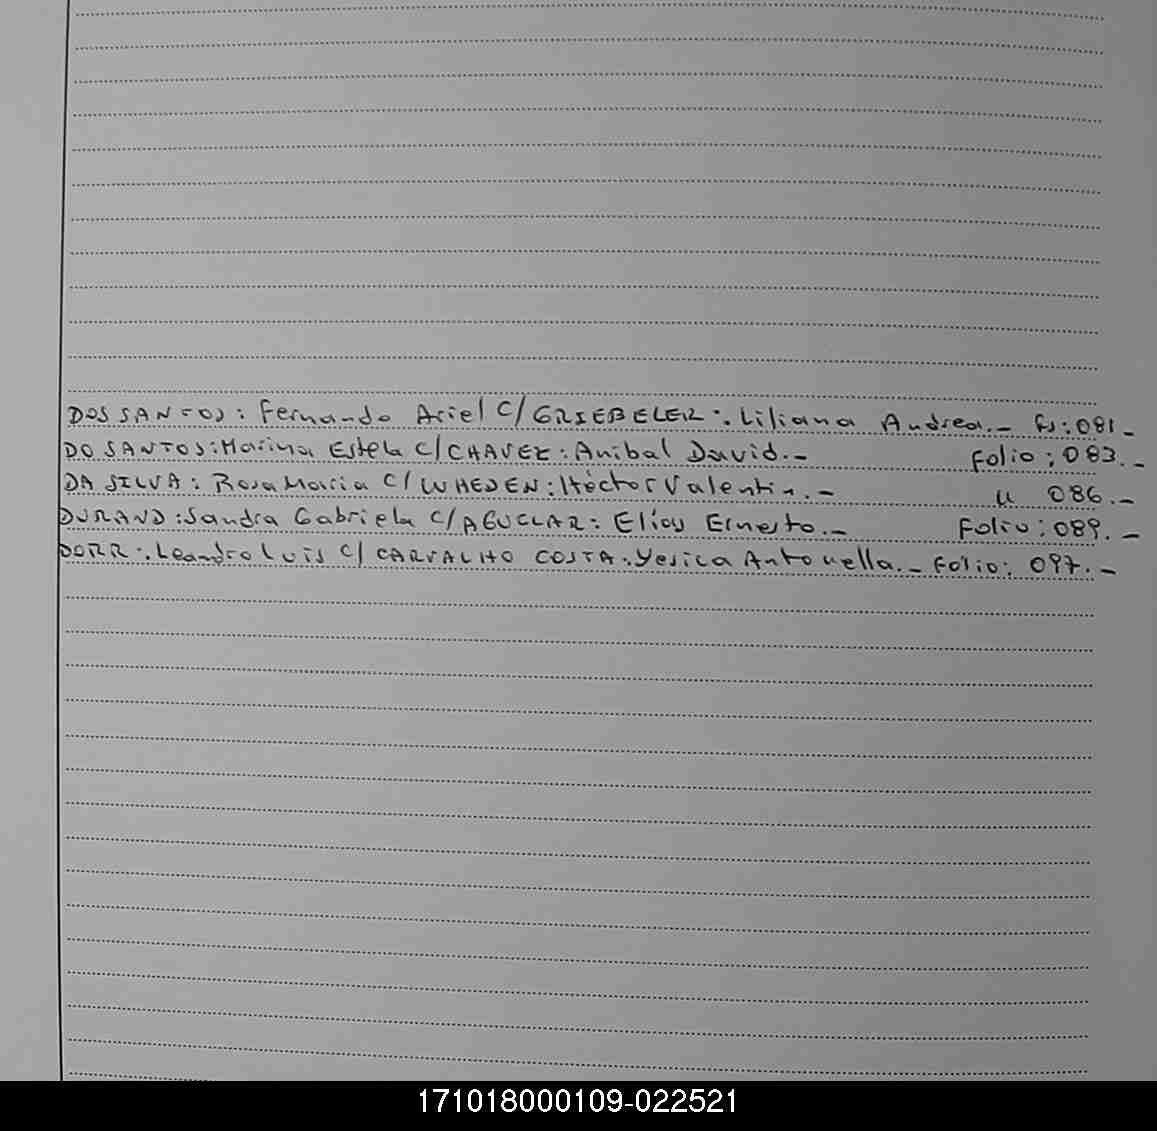 DOS SANTOS: Fernando Ariel C/ GRIEBELER: Liliana Andrea.- Fs: 081-
DO SANTOS: Marina Estela C/ CHAVEZ: Anibal David.- Folio: 083.-
DA SILVA: Rosa Maria C/ WHEDEN: Héctor Valentin.- " 086.-
DURAND: Sandra Gabriela C/ AGUCLAR: Elías Ernesto.- Folio: 089.-
DORR: Leandro Luis C/ CARVALHO COSTA: Yesica Antonella.- Folio: 097.-
171018000109-022521